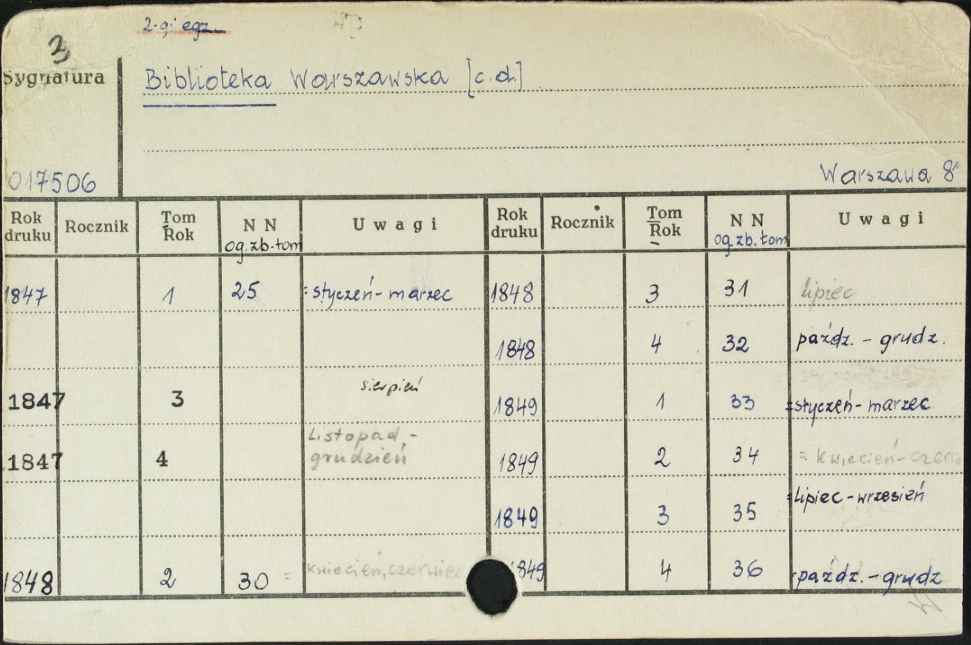 2-gi egz.
3
Sygnatura
Biblioteka Warszawska [c.d.]
017506
Warszawa 8°
Rok druku Rocznik Tom Rok NN og.zb.tom Uwagi Rok druku Rocznik Tom Rok NN og.zb.tom Uwagi
1847 1 25 = styczeń - marzec 1848 3 31 lipiec
1848 4 32 paźdz. - grudz.
1847 3 sierpień 1849 1 33 = styczeń - marzec
1847 4 Listopad - grudzień 1849 2 34 = kwiecień - czerw
1849 3 35 = Lipiec - wrzesień
1848 2 30 = kwiecień, czerwiec 1849 4 36 - paźdz. - grudz